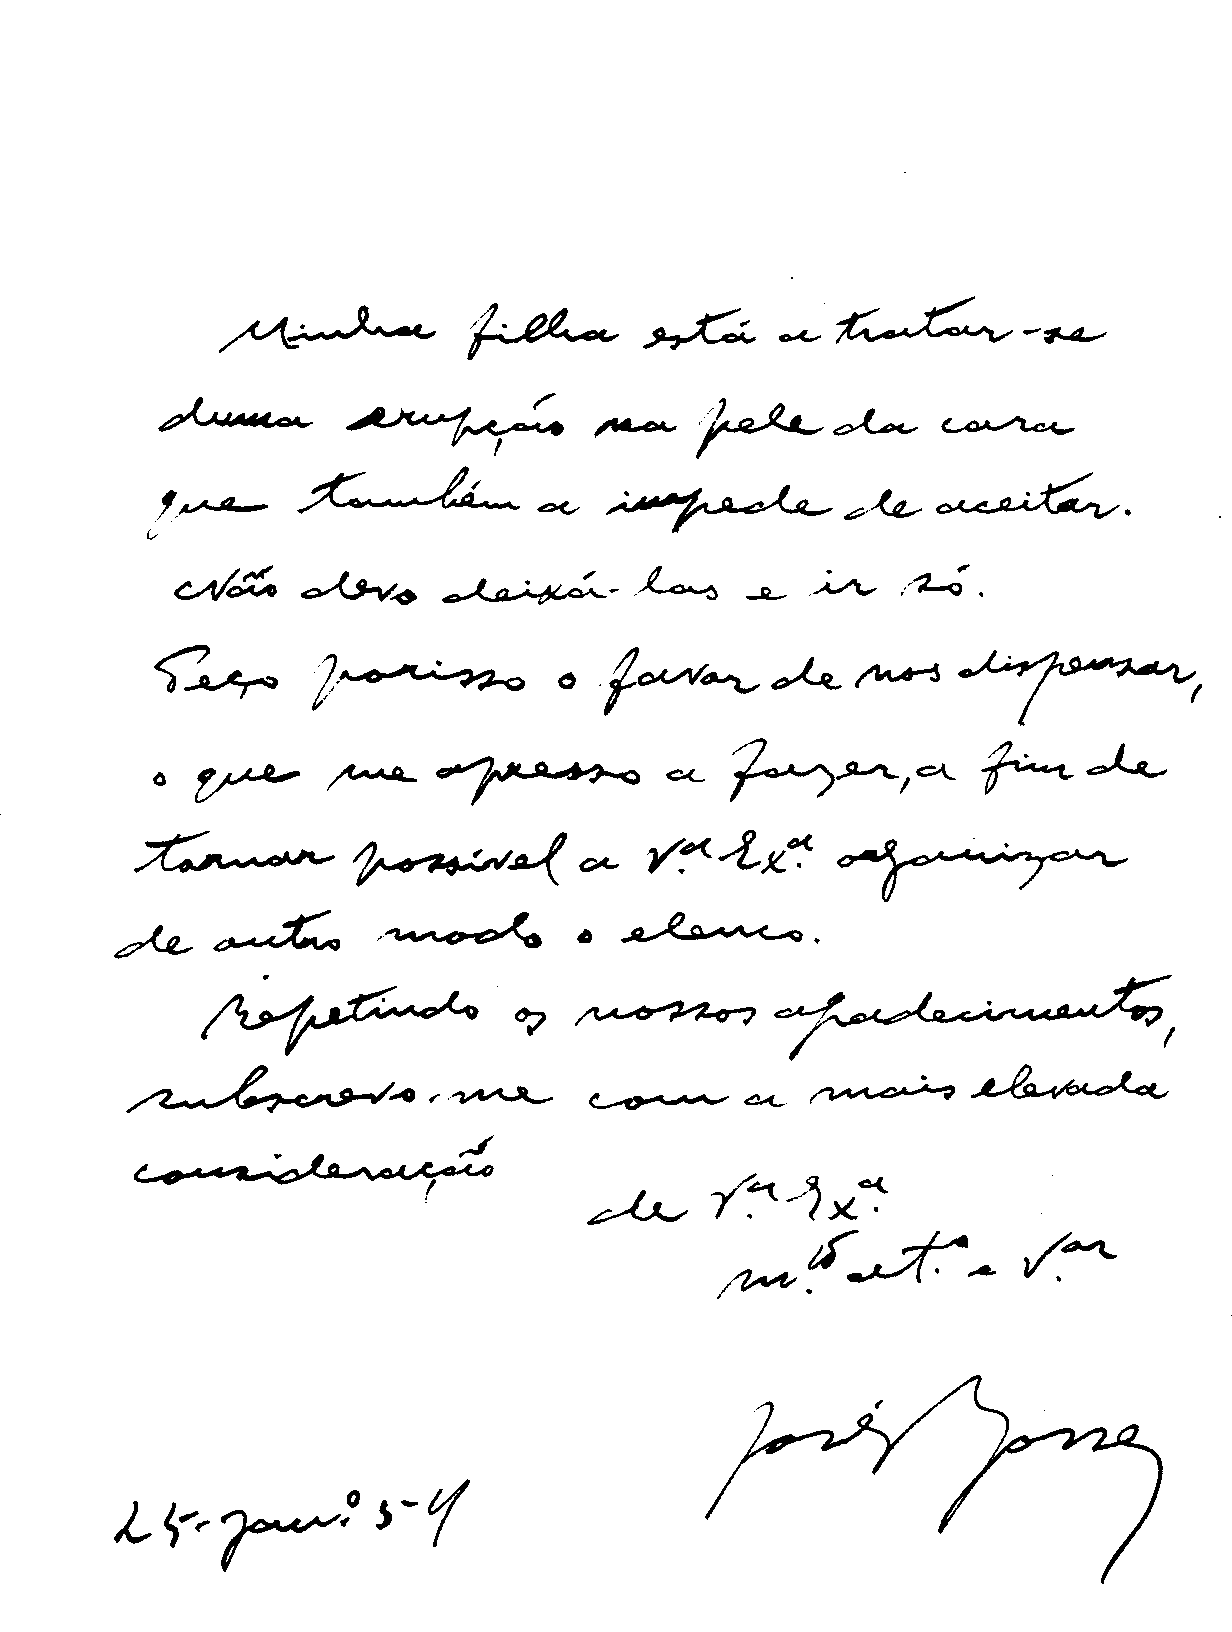 Minha filha está a tratar-se
duma erupção na pele da cara
que também a impede de aceitar.
Não devo deixá-las e ir só.
Peço porisso o favor de nos dispensar,
o que me apresso a fazer, a fim de
tornar possível a V.ª Ex.ª organizar
de outro modo o elenco.
Repetindo os nossos agradecimentos,
subscrevo-me com a mais elevada
consideração
de V.ª Ex.ª
m.to at.º e V.or
José
25-jan.º 54